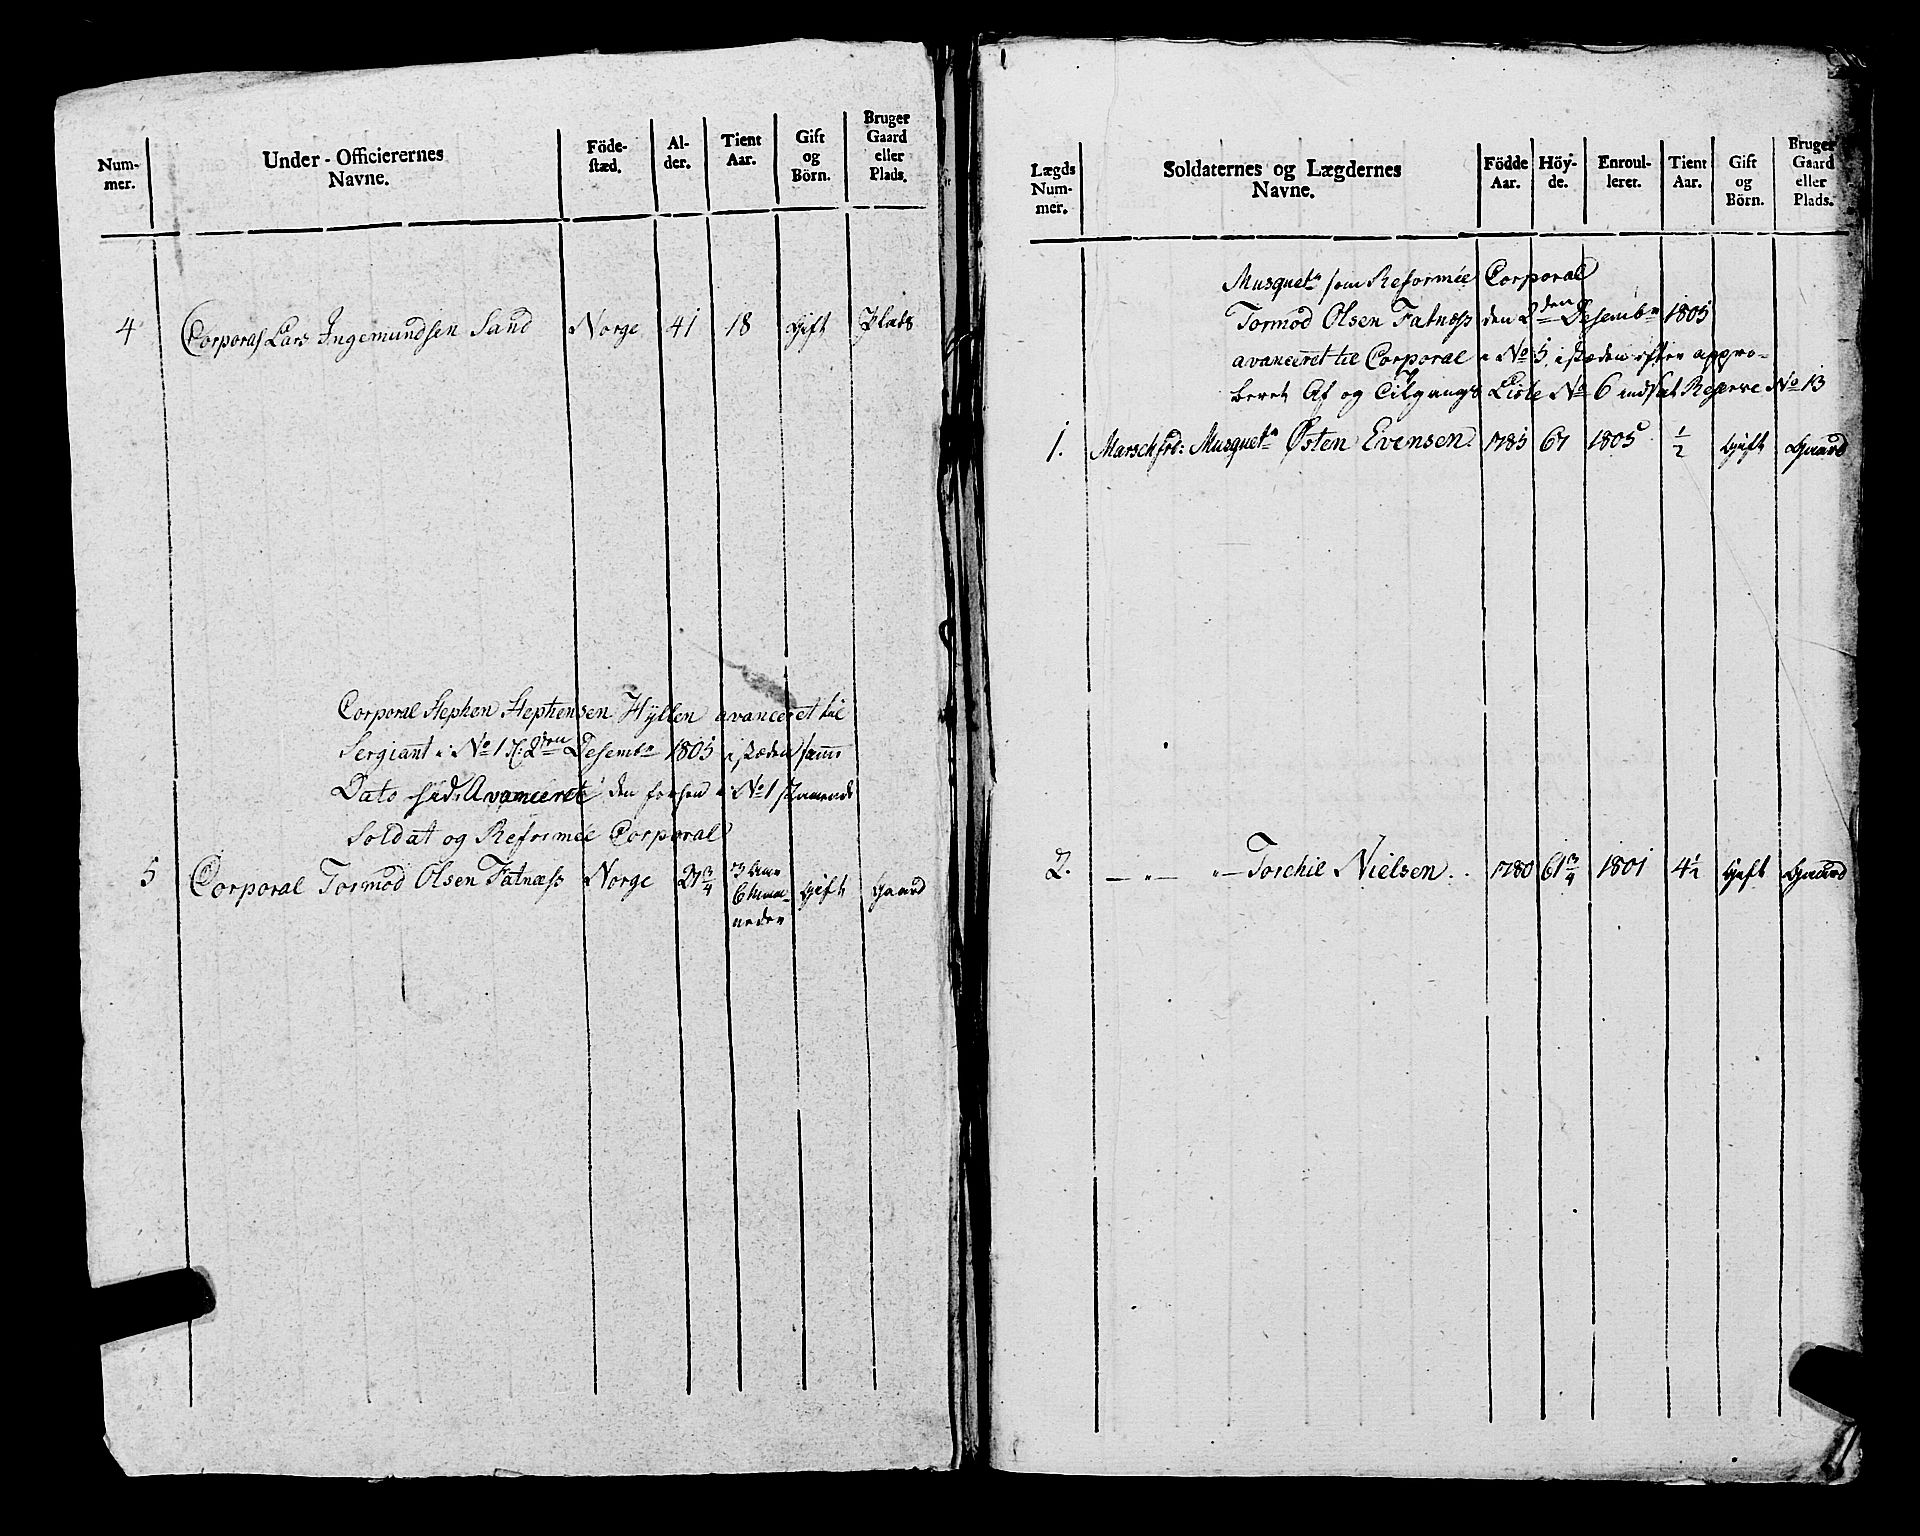 Num-
mer.
Under-Officierernes
Navne.
Föde-
stæd.
Al-
der.
Tient
Aar.
Gift
og
Börn.
Bruger
Gaard
eller
Plads.
4 Corporal Lars Ingemundsen Sand Norge 41 18 Gift Plads
Corporal Stephen Stephensen Hyllen avanceret til
Sergiant i No 1 2den Desembr 1805 i stæden samme
Dato Avanceret den forhen i No 1 staaende
Soldat og Reformée Corporal
5 Corporal Tormod Olsen Fatnæss Norge 21 3/4 3 Aar Gift Gaard
6 Maa-
neder
Lægds
Num-
mer.
Soldaternes og Lægdernes
Navne.
Födde
Aar.
Höy-
de.
Enroul-
leret.
Tient
Aar.
Gift
og
Börn.
Bruger
Gaard
eller
Plads.
Musquetr som Reformée Corporal
Tormod Olsen Fatnæss den 2den Desembr 1805
avanceret til Corporal i No 5, i stæden efter appro-
beret Af og Tilgangs Liste No 6 indsat Reserve No 13
1. Marschfrd: Musquetr Østen Evensen 1785 67 1805 1/2 Gift Gaard
2. — " — " — Torchil Nielsen . . 1780 61 3/4 1801 4 1/2 Gift Gaard